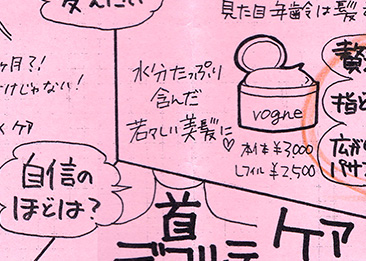 見た目年齢は髪
ヶ月て!
けじゃない!
ケア
水分たっぷり
含んだ
若々しい美髪に♡
vogne
本体 ¥3,000
レフィル ¥2,500
贅
指と
広が
パサ
自信の
ほどは?
首
デコルテ
ケア